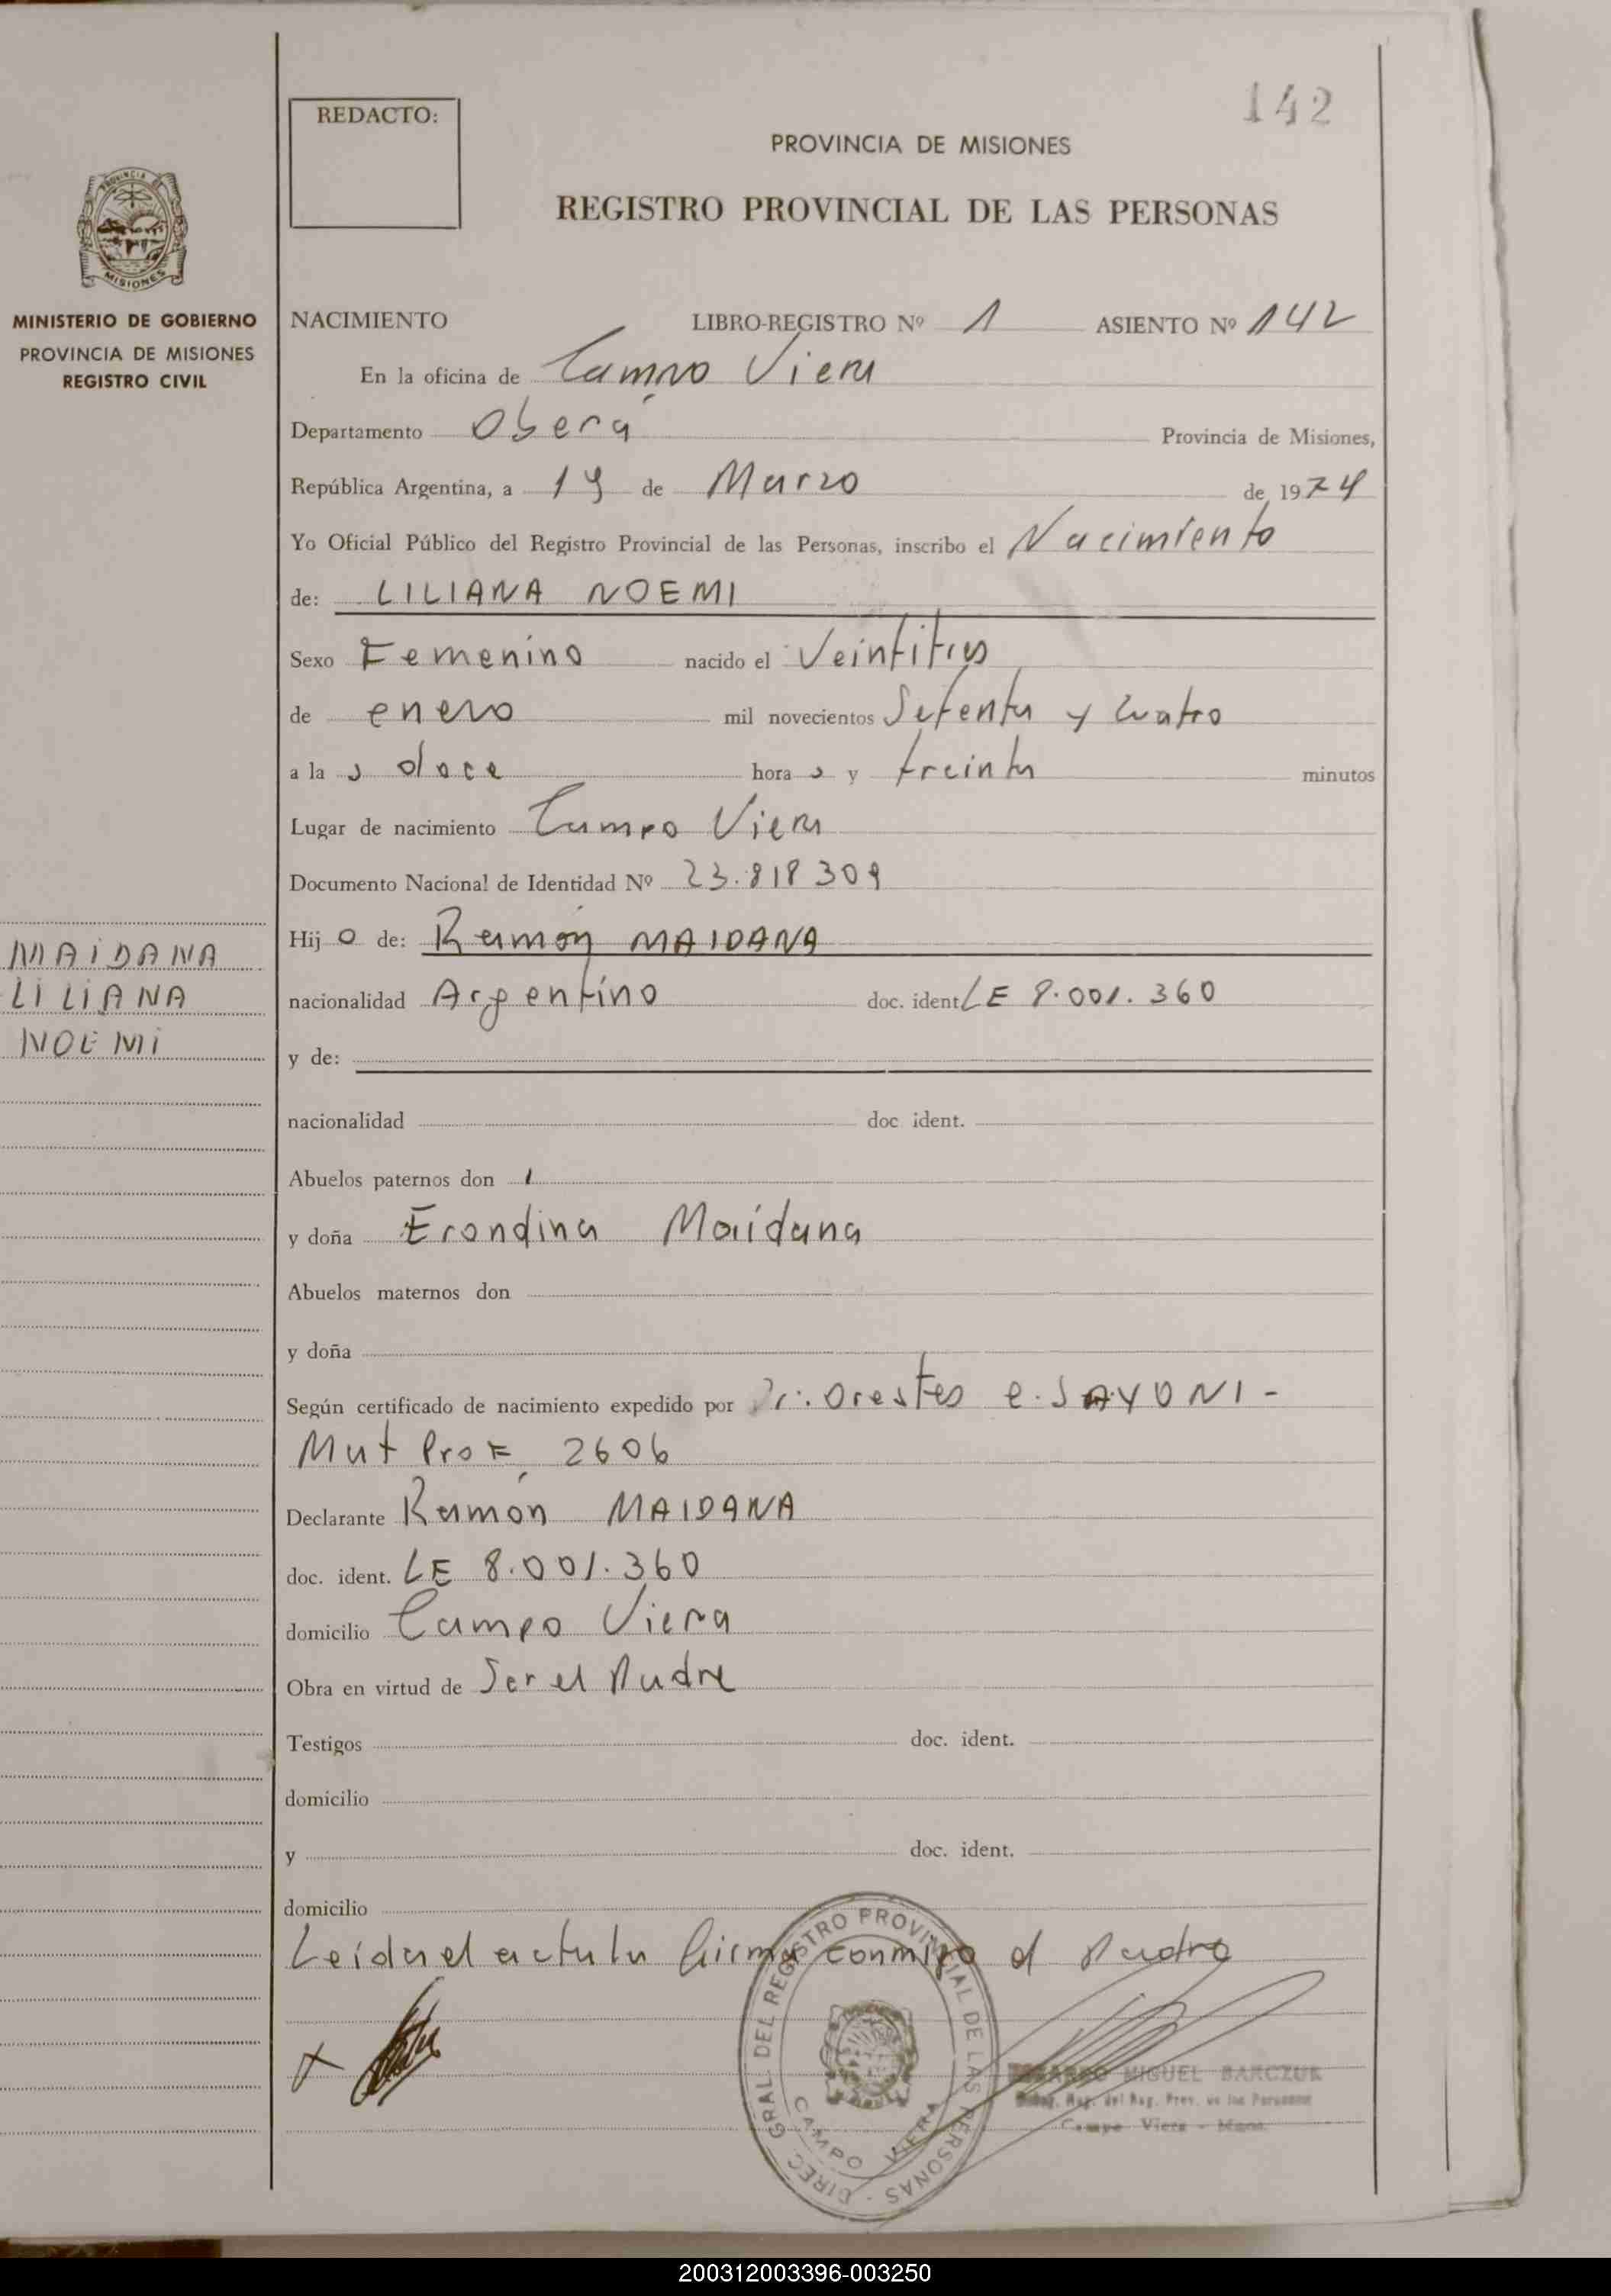 142
REDACTO:
PROVINCIA DE MISIONES
REGISTRO PROVINCIAL DE LAS PERSONAS
PROVINCIA DE
MISIONES
MINISTERIO DE GOBIERNO
PROVINCIA DE MISIONES
REGISTRO CIVIL
NACIMIENTO LIBRO-REGISTRO Nº 1 ASIENTO Nº 142
En la oficina de Campo Viera
Departamento Oberá Provincia de Misiones,
República Argentina, a 19 de Marzo de 1974
Yo Oficial Público del Registro Provincial de las Personas, inscribo el Nacimiento
de: LILIANA NOEMI
Sexo Femenino nacido el Veintitres
de enero mil novecientos Setenta y cuatro
a la s doce hora s y treinta minutos
Lugar de nacimiento Campo Viera
Documento Nacional de Identidad Nº 23.818309
Hij o de: Ramón MAIDANA
nacionalidad Argentino doc. ident LE 8.001.360
y de:
nacionalidad doc ident.
Abuelos paternos don
y doña Erondina Maidana
Abuelos maternos don
y doña
Según certificado de nacimiento expedido por Dr. Orestes e. SAYONI -
Mat Prof 2606
Declarante Ramón MAIDANA
doc. ident. LE 8.001.360
domicilio Campo Viera
Obra en virtud de Ser el Padre
Testigos doc. ident.
domicilio
y doc. ident.
domicilio
Leida el acta la firma conmigo el Padre
MAIDANA
LILIANA
NOEMI
DIREC GRAL DEL REGISTRO PROVINCIAL DE LAS PERSONAS
CAMPO VIERA
MIGUEL BARCZUK
del Reg. Prov. de las Personas
Campo Viera - Mnes.
200312003396-003250